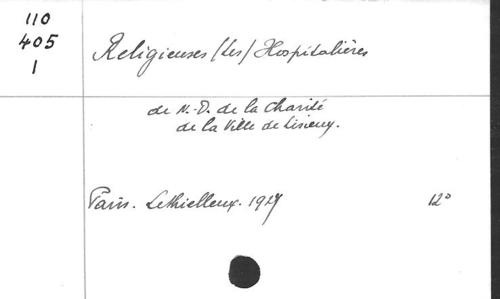 110
405
1
Religieuses (Les) Hospitalières
de N.-D. de la Charité
de la Ville de Lisieux.
Paris. Lethielleux. 1927 12°